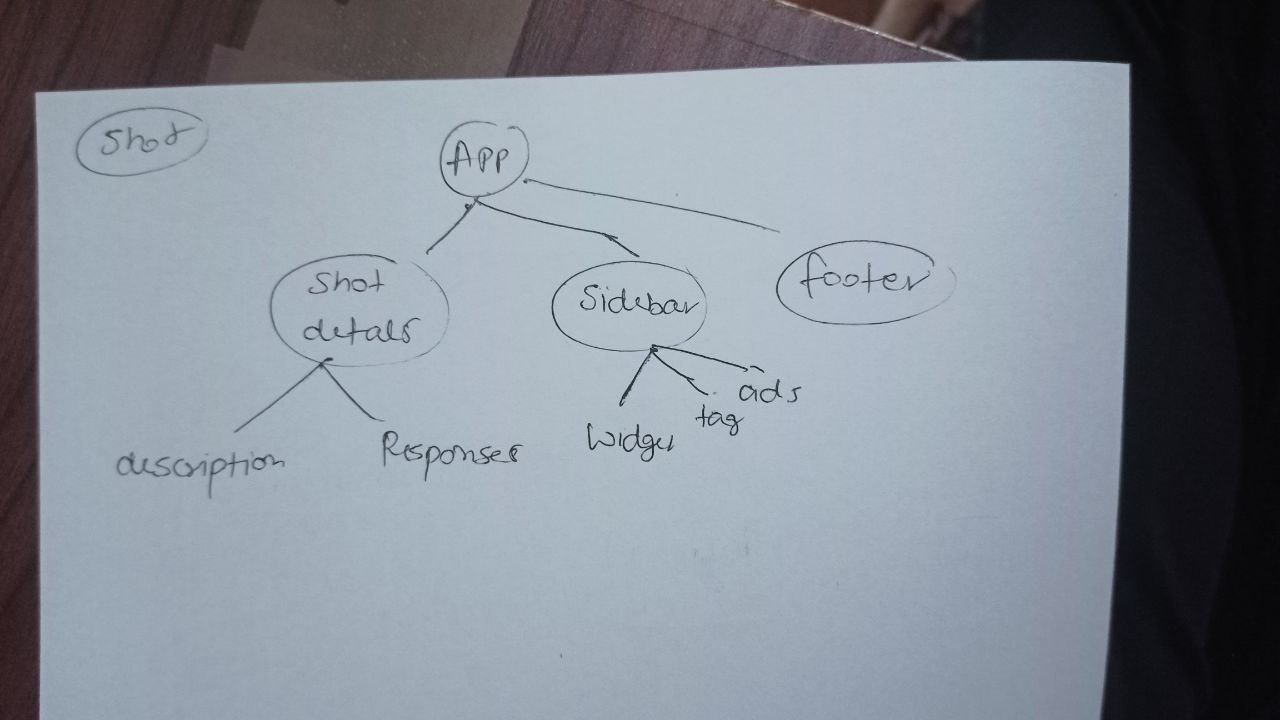 Shot
App
Shot
detals
Sidebar
footer
description
Responses
Widget
tag
ads